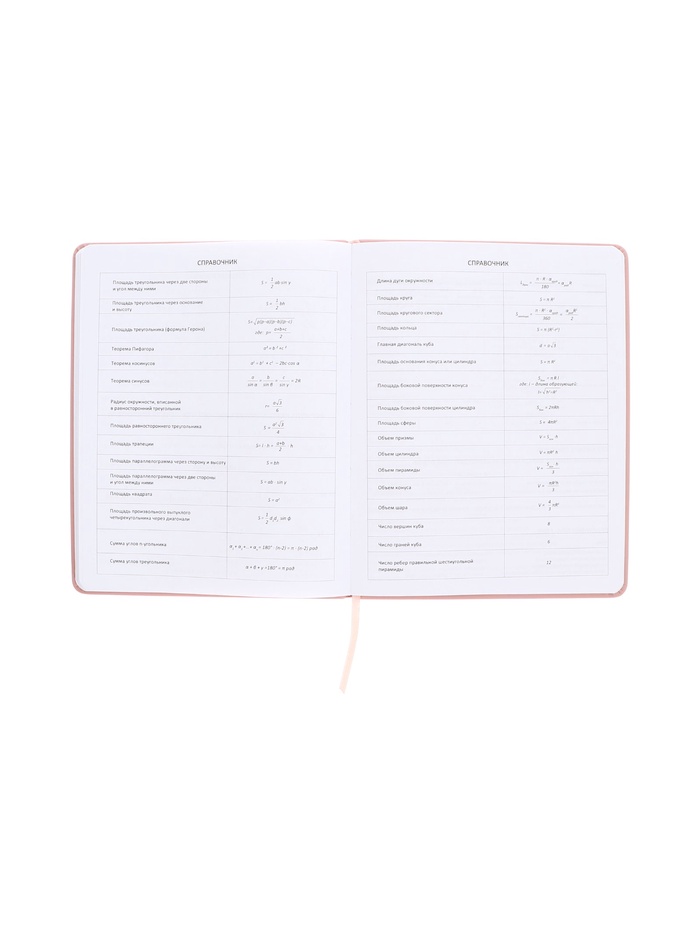 СПРАВОЧНИК
Площадь треугольника через две стороны
и угол между ними
S = 1/2 ab sin γ
Площадь треугольника через основание
и высоту
S = 1/2 bh
Площадь треугольника (формула Герона)
S=√p(p-a)(p-b)(p-c)
где p= a+b+c/2
Теорема Пифагора
Теорема косинусов
a² = b² + c² - 2bc cos α
Теорема синусов
a/sin α = b/sin β = c/sin γ = 2R
Радиус окружности, вписанной
в равносторонний треугольник
r= a√3/6
Площадь равностороннего треугольника
S = a²√3/4
Площадь трапеции
a+b/2 · h
Площадь параллелограмма через сторону и высоту
S = bh
Площадь параллелограмма через две стороны
и угол между ними
S = ab · sin γ
Площадь квадрата
S = a²
Площадь произвольного выпуклого
четырехугольника через диагонали
S = 1/2 d₁d₂ sin φ
Сумма углов n-угольника
= 180° · (n-2) = π · (n-2) рад
Сумма углов треугольника
α + β + γ =180° = π рад
СПРАВОЧНИК
Длина дуги окружности
Площадь круга
S = π R²
Площадь кругового сектора
Площадь кольца
S = π (R²-r²)
Главная диагональ куба
d = a√3
Площадь основания конуса или цилиндра
S = π R²
Площадь боковой поверхности конуса
где: l - длина образующей
Площадь боковой поверхности цилиндра
= 2πRh
Площадь сферы
S = 4πR²
Объем призмы
Объем цилиндра
V = πR² h
Объем пирамиды
Объем конуса
V = πR²h/3
Объем шара
V = 4/3 πR³
Число вершин куба
8
Число граней куба
6
Число ребер правильной шестиугольной
пирамиды
12